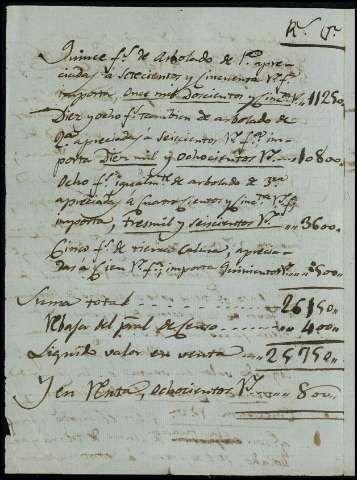 Rs. Vn.
Quince fs. de arbolado de 1ª apre-
ciadas a setecientos y cincuenta Rs. fa.
importa, once mil doscientos y cincta. Rs. 11250,,
Diez y ocho fs. tambien de arbolado de
2ª apreciadas a seiscientos Rs. fa. im-
porta Diez mil y ochocientos Rs. 10800,,
Ocho fs. igualmte. de arbolado de 3ª
apreciadas a cuatrocientos y cincta. Rs. fa.
importa, tresmil y seiscientos Rs. ,, 3600,,
Cinco fs. de tierra Calma, aprecia-
das a Cien Rs. fa. importa Quinientos Rs. ,, 0500,,
Suma total 26150,,
Rebaja del pral. de Censo ,, 400,,
Liquido valor en venta ,, 25750,,
Y en Renta, ochocientos Rs. ,, 800,,